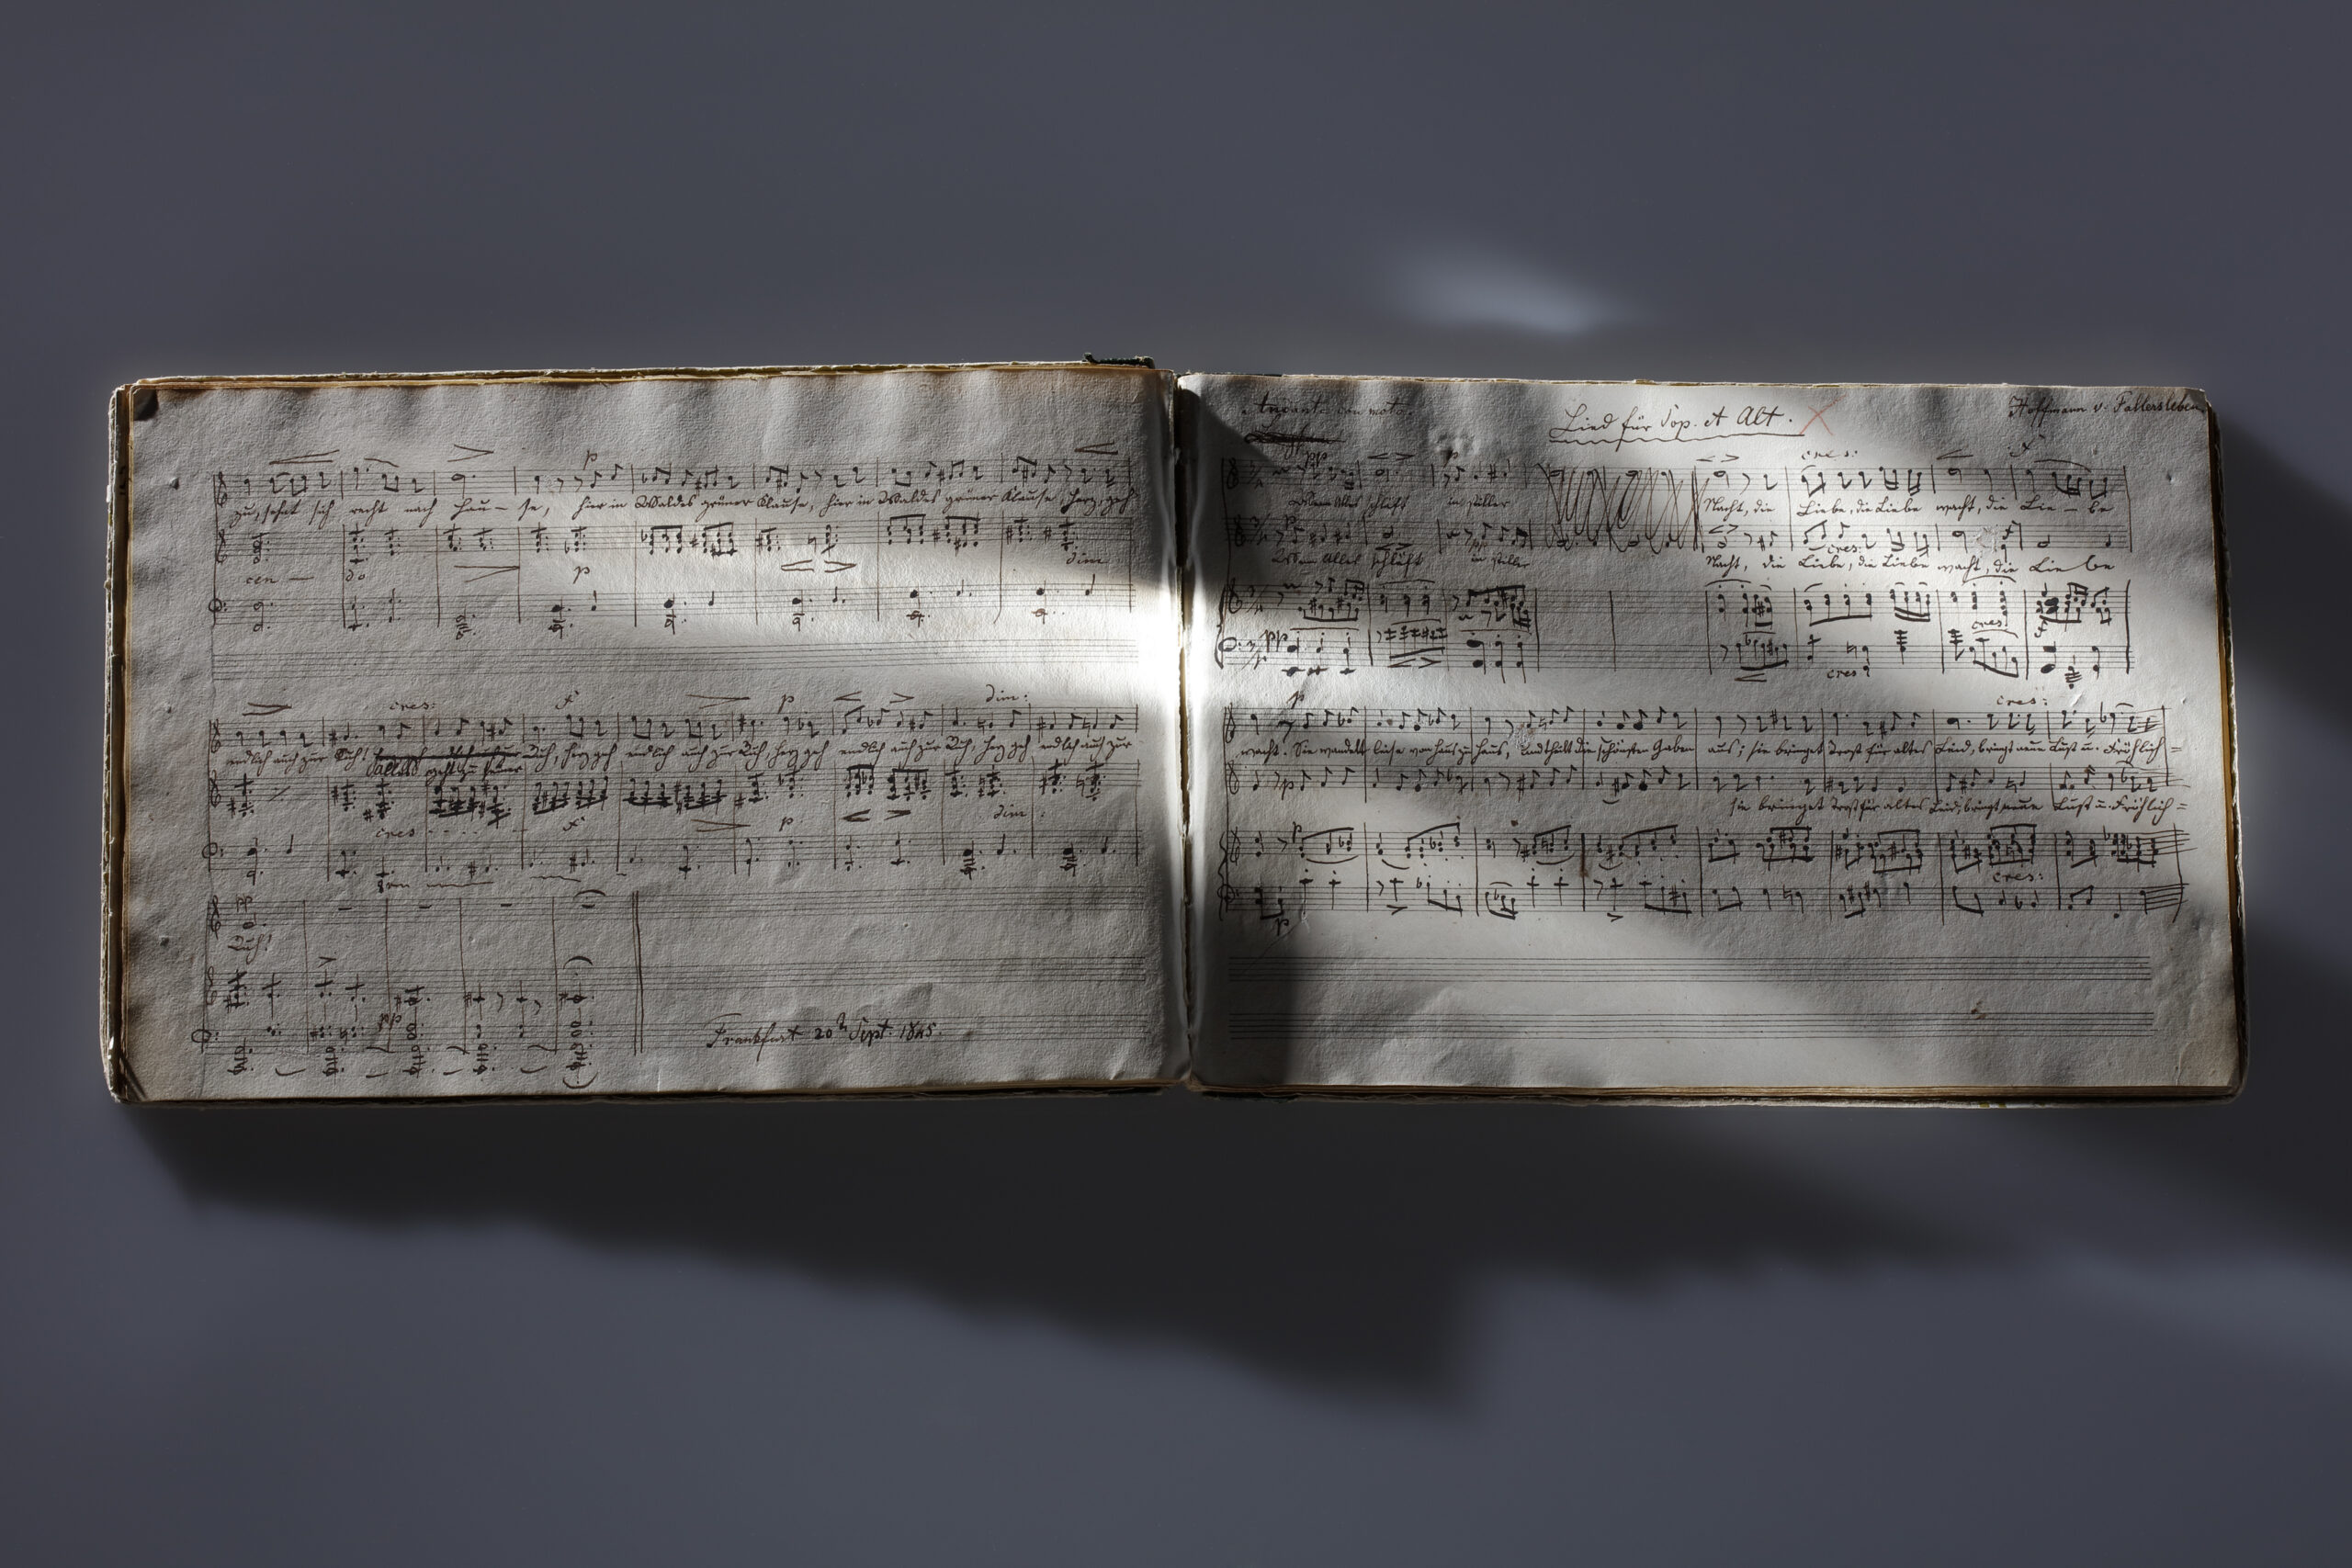 p
zu, sehnt sich recht nach Hau – se, hier in Waldes grüner Klause, hier in Waldes grüner Klause, Herz, geh
cen – do p dim:
cres: f p dim:
endlich auch zur Ruh! Ruh, Herz geh endlich auch zur Ruh, Herz geh endlich auch zur Ruh, Herz geh endlich auch zur
Alles geht zu seiner
cres f p: dim:
8va
pp
Ruh!
pp
Frankfurt 20t Sept: 1845.
Andante con moto. Lied für Sop. et Alt. X Hoffmann v. Fallersleben
pp p cres: f
Wenn Alles schläft in stiller Nacht, die Liebe, die Liebe wacht, die Lie – be
p pp cres:
Wenn Alles schläft in stiller Nacht, die Liebe, die Liebe wacht, die Lie be
pp cres: cres:
p cres:
wacht. Sie wandelt leise von Haus zu Haus, und theilt die schönsten Gaben aus; sie bringet Trost für altes Leid, bringt neue Lust u. Fröhlich=
p
sie bringet Trost für altes Leid, bringt neue Lust u. Fröhlich=
p cres:
p